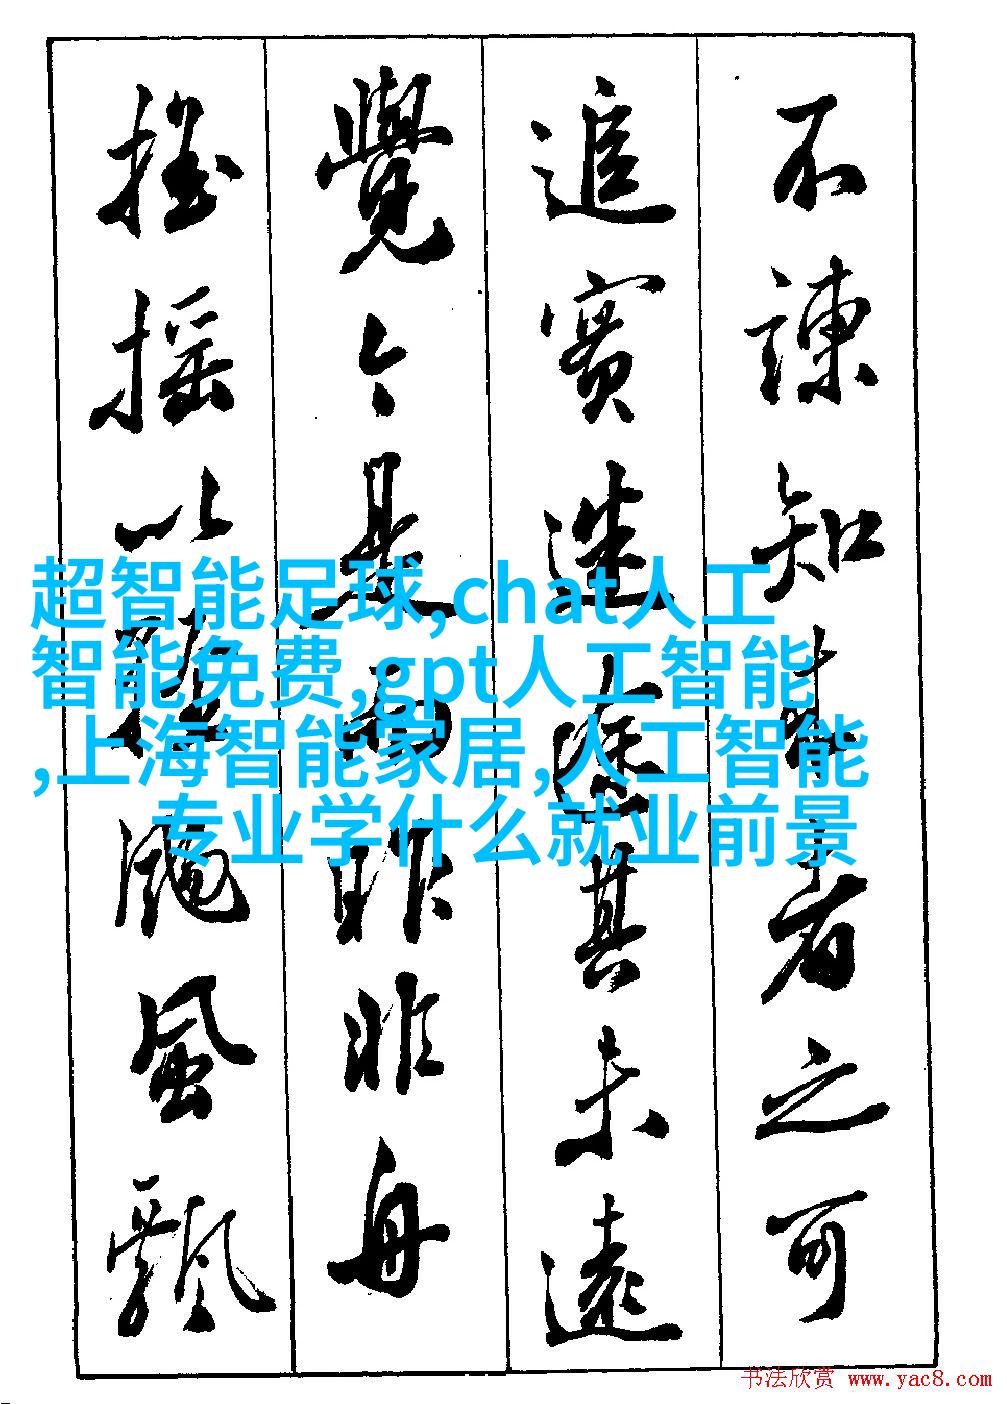 不諫知來者之可
追實迷途其未遠
覺今是而昨非舟
搖搖以輕颺風飄
超智能足球,chat人工
智能免费,gpt人工智能
,上海智能家居,人工智能
专业学什么就业前景
书法欣赏 www.yac8.com